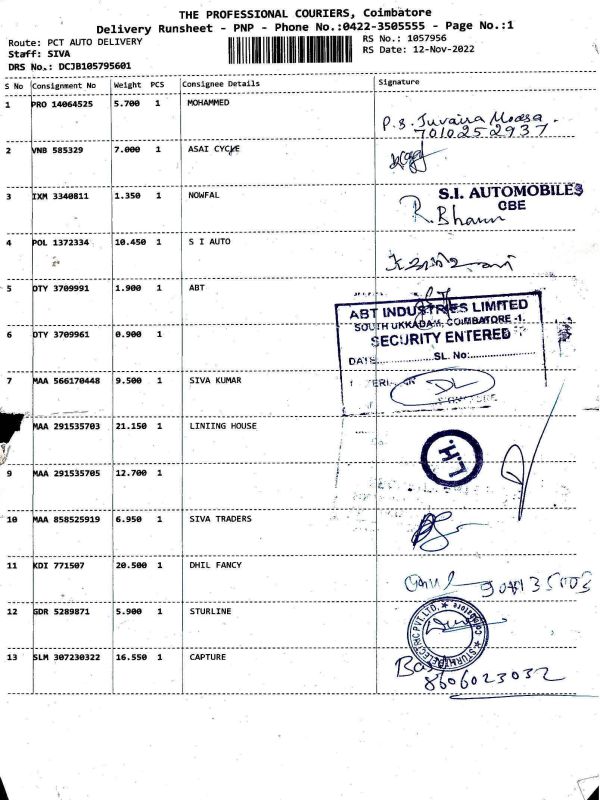 THE PROFESSIONAL COURIERS, Coimbatore
Delivery Runsheet - PNP - Phone No.:0422-3505555 - Page No.:1
Route: PCT AUTO DELIVERY
RS No.: 1057956
Staff: SIVA
RS Date: 12-Nov-2022
DRS No.: DCJB105795601
S No Consignment No Weight PCS Consignee Details Signature
1 PRO 14064525 5.700 1 MOHAMMED
P.S. Juvaina Moosa.
7010252937
2 VNB 585329 7.000 1 ASAI CYCLE
3 IXM 3340811 1.350 1 NOWFAL
S.I. AUTOMOBILES
CBE
R. Bhanu
4 POL 1372334 10.450 1 S I AUTO
5 DTY 3709991 1.900 1 ABT
ABT INDUSTRIES LIMITED
SOUTH UKKADAM, COIMBATORE -1.
SECURITY ENTERED
DATE SL. No:
6 DTY 3709961 0.900 1
7 MAA 566170448 9.500 1 SIVA KUMAR
SIGNATURE
MAA 291535703 21.150 1 LINIING HOUSE
L.H.
9 MAA 291535705 12.700 1
10 MAA 858525919 6.950 1 SIVA TRADERS
11 KDI 771507 20.500 1 DHIL FANCY
12 GDR 5289871 5.900 1 STURLINE
COIMBATORE
13 SLM 307230322 16.550 1 CAPTURE
8606023032